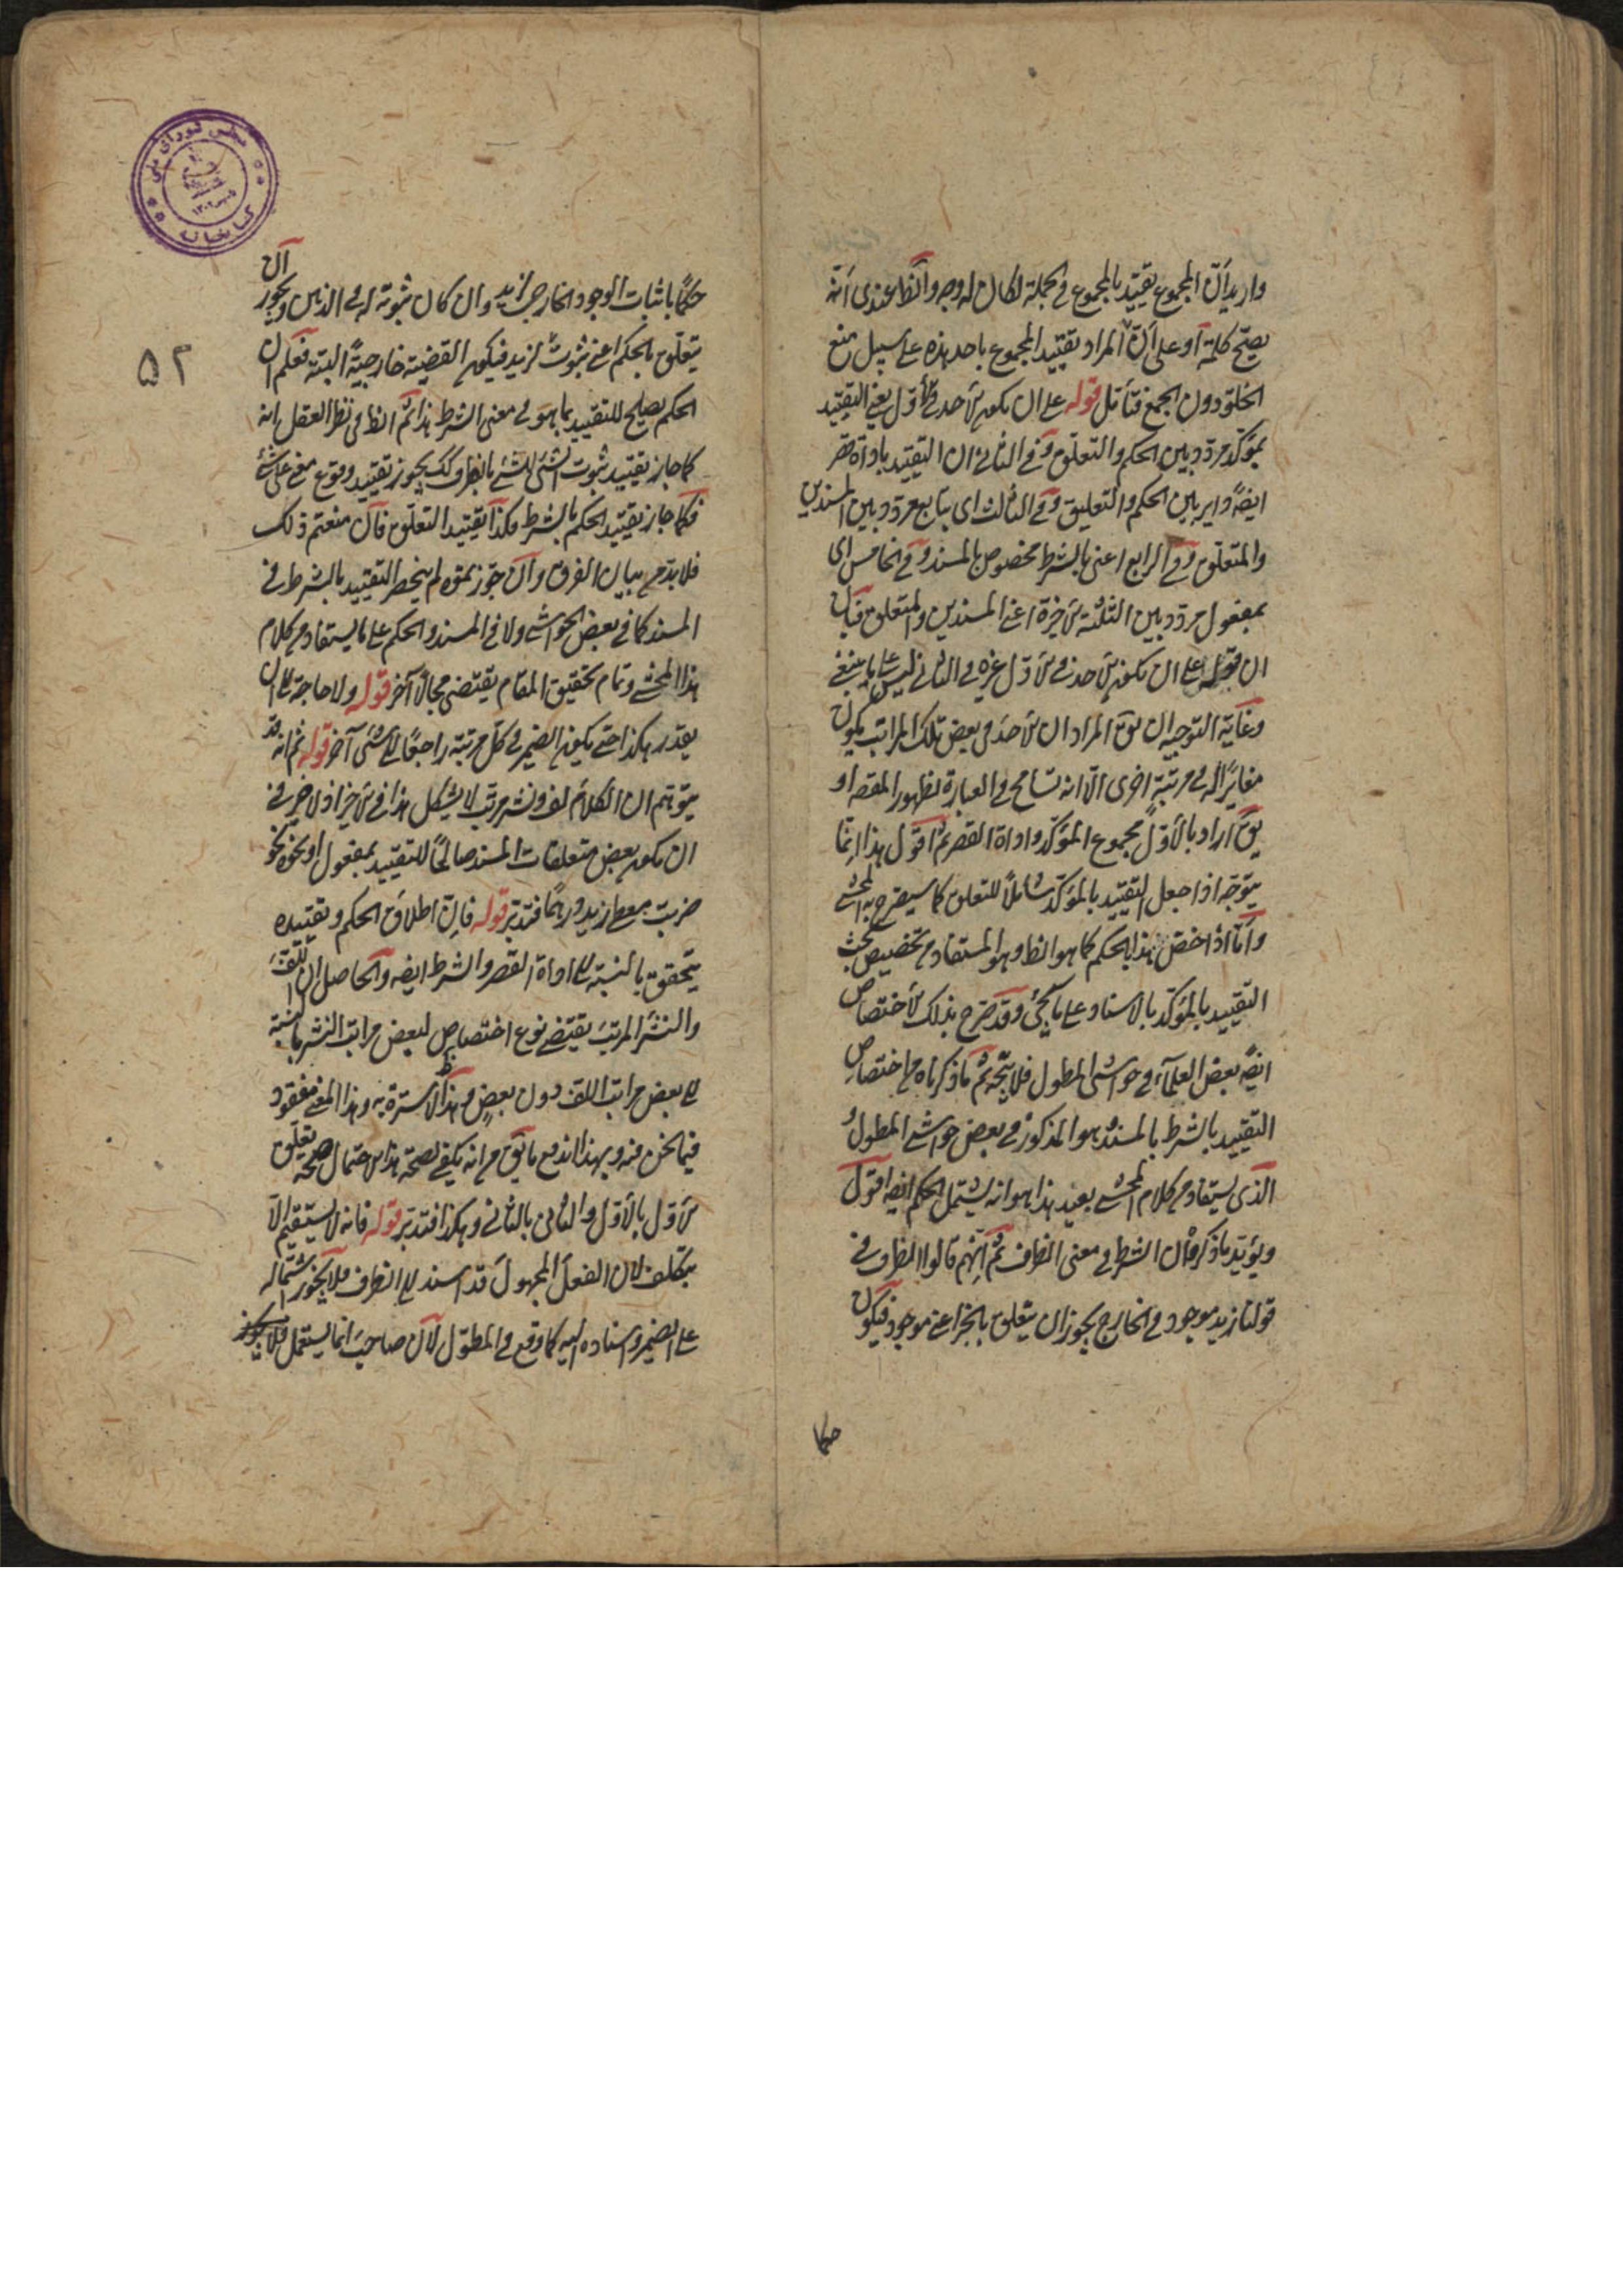 واريد أنّ المجموع تقييد بالمجموع في الجملة لكان له وجه والظ عندى أنّه
يصحّ كلمة أو على أنّ المراد تقييد المجموع باحد هذه على سبيل منع
الخلوّ دون الجمع فتأمّل قوله على ان يكون الاحد في الأوّل يعنى التقييد
بمؤكّد مردّد بين الحكم والتعلّق وفي الثانى ان التقييد باداة قصر
ايضًا داير بين الحكم والتعليق وفي الثالث اى بتابع مردّد بين المسندين
والمتعلّق وفي الرابع اعنى بالشرط مخصوص بالمسند وفي الخامس اى
بمفعول مردّد بين الثلثة الاخيرة اعنى المسندين والمتعلق
ان قوله على ان يكون الاحد في الاوّل غيره في الثانى ليس على ما ينبغى
وغاية التوجيه ان يق المراد ان الاحد في بعض تلك المراتب يكون
مغايرًا له في مرتبة اخرى الّا انه تسامح في العبارة لظهور المقصد او
يق اراد بالأوّل مجموع المؤكّد واداة القصر ثم اقول هذا انّما
يتوجّه اذا جعل التقييد بالمؤكّد شاملًا للتعلق كما سيصرح به المحشى
وأمّا اذا خصّ هذا بالحكم كما هو الظ وهو المستفاد من تخصيص بحث
التقييد بالمؤكّد بالاسناد على ما يجئ وقد صرح بذلك الاختصاص
ايضًا بعض العلمآء في حواشى المطول فلا يتّجه ثم ما ذكرناه من اختصاص
التقييد بالشرط بالمسند هو المذكور في بعض حواشى المطول و
الذى يستفاد من كلام المحشى بعيد هذا هو انه يشتمل الحكم ايضا اقول
ويؤيّد ما ذكر أن الشرط في معنى الظرف ثم انّهم قالوا الظرف في
قولنا زيد موجود في الخارج يجوز ان يتعلق بالخبر اعنى موجود فيكون
حكما
حكمًا باثبات الوجود الخارجى لزيد وان كان ثبوته له في الذهن ويجوز ان
يتعلق بالحكم اعنى ثبوت لزيد فيكون القضية خارجيةً البتة فعلم ان
الحكم يصلح للتقييد بما هو في معنى الشرط هذا ثم الظ في نظر العقل انه
كما جاز تقييد ثبوت الشئ للشئ بالظرف كك يجوز تقييد وقوع معنى على شئ
فكما جاز تقييد الحكم بالشرط فكذا تقييد التعلق فان منعتم ذلك
فلا بدّ من بيان الفرق وان جوّزتموه لم ينحصر التقييد بالشرط في
المسند كما في بعض الحواشى ولا في المسند والحكم على ما يستفاد من كلام
هذا المحشى وتمام تحقيق المقام يقتضى مجالًا آخر قوله ولا حاجة الى ان
يقدّر هكذا حتى يكون الضمير في كلّ مرتبة راجعًا الى شئ آخر قوله ثم انه قد
يتوهّم ان الكلام لف ونشر مرتب لا يشكل هذا في الاخير اذ لا ضير في
ان يكون بعض متعلقات المسند صالحًا للتقييد بمفعول او نحوه نحو
ضربت معطى زيد درهمًا فتدبّر قوله فانّ اطلاق الحكم وتقييده
يتحقق بالنسبة الى اداة القصر والشرط ايضا والحاصل ان اللف
والنشر المرتب يقتضى نوع اختصاص لبعض مراتب النشر بالنسبة
الى بعض مراتب اللف دون بعض وهذا لا سترة به وهذا المعنى مفقود
فيما نحن فيه وبهذا اندفع ما يق من انه يكفى لصحة هذا الاحتمال صحة تعلّق
الاوّل بالأوّل والثانى بالثانى وهكذا فتدبّر قوله فانه لا يستقيم الّا
بتكلف لان الفعل المجهول قد اسند الى الظرف فلا يجوز اشتماله
على الضمير واسناده اليه كما وقع في المطوّل لانّ صاحب انما يستعمل فلا يجوز
۵۲
مجلس شورای ملی
کتابخانه